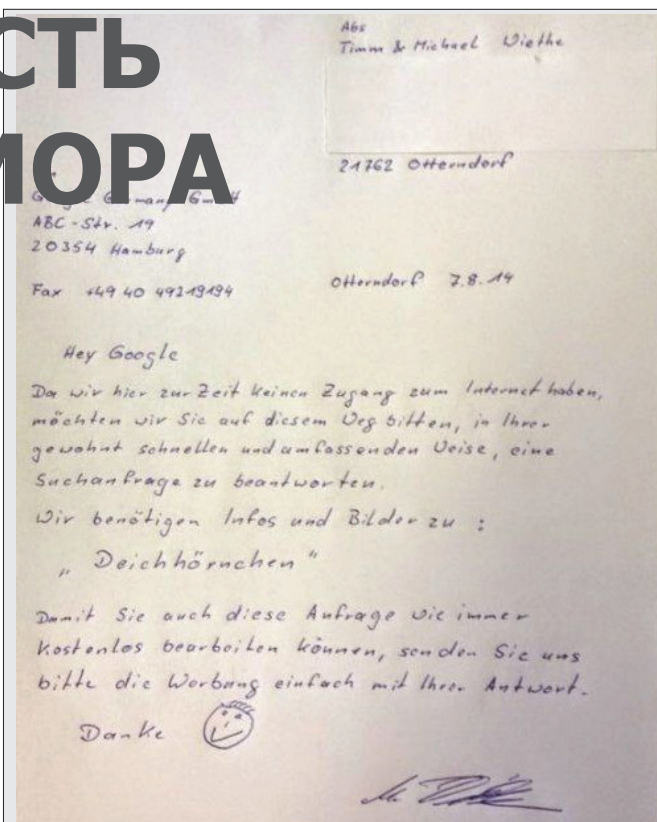 СТЬ
МОРА
Abs
Timm & Michael Wiethe
21762 Otterndorf
Google Germany GmbH
ABC-Str. 19
20354 Hamburg
Fax +49 40 49219194
Otterndorf 7.8.14
Hey Google
Da wir hier zur Zeit keinen Zugang zum Internet haben,
möchten wir Sie auf diesem Weg bitten, in Ihrer
gewohnt schnellen und umfassenden Weise, eine
Suchanfrage zu beantworten.
Wir benötigen Infos und Bilder zu :
„Deichhörnchen“
Damit Sie auch diese Anfrage wie immer
kostenlos bearbeiten können, senden Sie uns
bitte die Werbung einfach mit Ihrer Antwort.
Danke